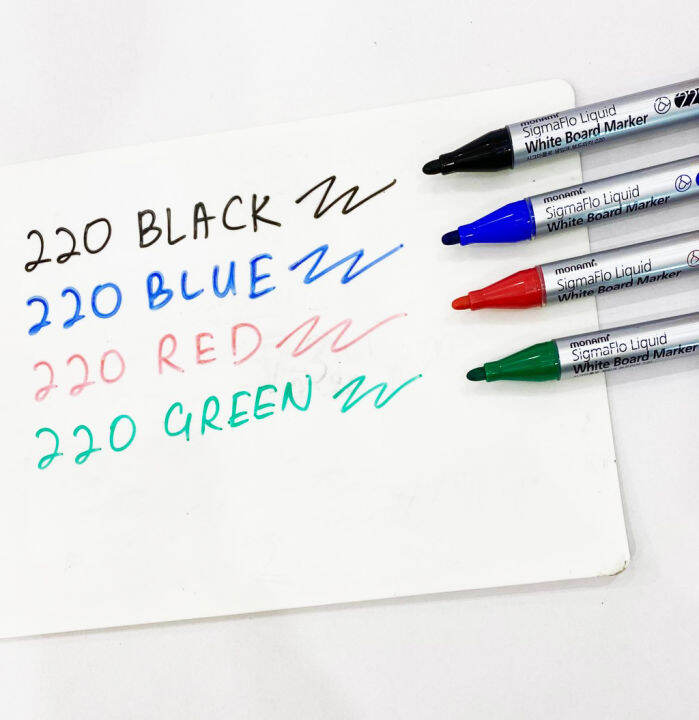 220 BLACK
220 BLUE
220 RED
220 GREEN
monami
SigmaFlo Liquid
White Board Marker
monami
SigmaFlo Liquid
White Board Marker
monami
SigmaFlo Liquid
White Board Marker
monami
SigmaFlo Liquid
White Board Marker